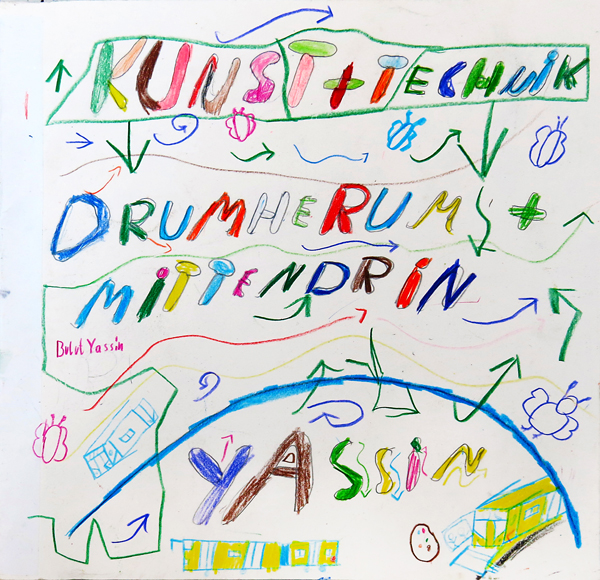 KUNST + TECHNiK
DRUMHERUM +
MiTTENDRiN
Bulut Yassin
YASSiN